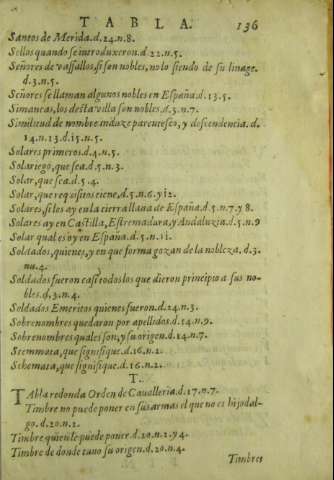 TABLA. 136
Santos de Merida.d.24.n.8.
Sellos quando se introduxeron.d.22.n.5.
Señores de vassallos, si son nobles, no lo siendo de su linage.
d.3.n.5.
Señores se llaman algunos nobles en España.d.13.5.
Simancas, los desta villa son nobles.d.3.n.7.
Similitud de nombre induze parentesco, y descendencia.d.
14.n.13.d.15.n.5.
Solares primeros.d.4.n.5.
Solariego, que sea.d.5.n.3.
Solar, que sea.d.5.4.
Solar, que requisitos tiene.d.5.n.6.y 12.
Solares, si los ay en la tierra llana de España.d.5.n.7.y 8.
Solares ay en Castilla, Estremadura, y Andaluzia.d.5.n.9
Solar qual es oy en España.d.5.n.11.
Soldados, quienes, y en que forma gozan de la nobleza.d.3.
nu.4.
Soldados fueron casi todos los que dieron principio a sus no-
bles.d.3.n.4.
Soldados Emeritos quienes fueron.d.24.n.3.
Sobrenombres quedaron por apellidos.d.14.n.9.
Sobrenombres quales son, y su origen.d.14.n.7.
Stemmata, que signifique.d.16.n.2.
Schemata, que signifique.d.16.n.2.
T.
TAbla redonda Orden de Caualleria.d.17.n.7.
Timbre no puede poner en sus armas el que no es hijodal-
go.d.20.n.2.
Timbre quien le puede poner.d.20.n.2.y 4.
Timbre de donde tuuo su origen.d.20.n.4.
Timbres